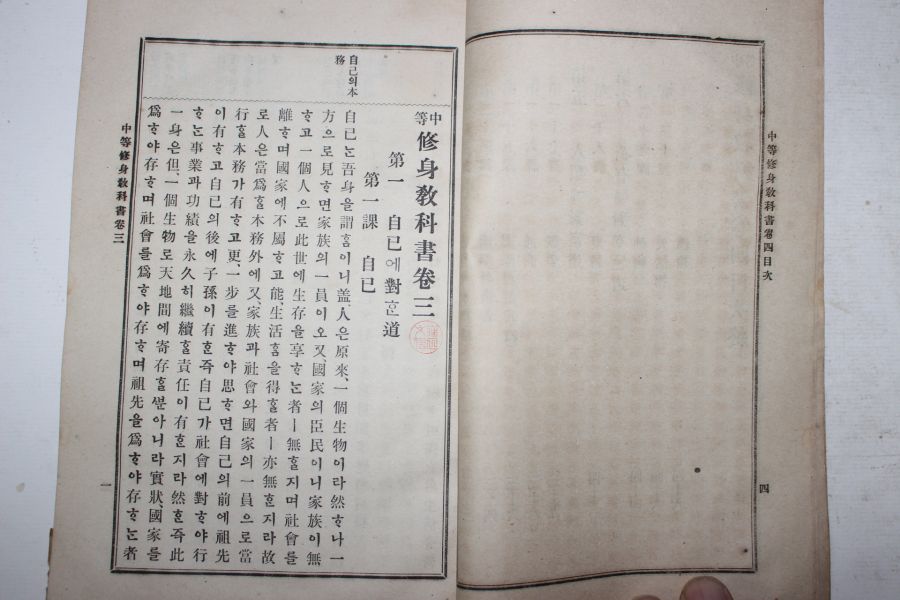 中等修身敎科書卷四目次
四
中等 修身敎科書卷三
第一 自己에對ᄒᆞᆫ道
第一課 自己
自己의本
務
自己ᄂᆞᆫ吾身을謂ᄒᆞᆷ이니盖、人은原來、一個生物이라然ᄒᆞ나一
方으로見ᄒᆞ면家族의一員이오又、國家의臣民이니家族이無
ᄒᆞ고一個人으로此世에生存을享ᄒᆞᄂᆞᆫ者ㅣ無ᄒᆞᆯ지며社會를
離ᄒᆞ며國家에不屬ᄒᆞ고能、生活ᄒᆞᆷ을得ᄒᆞᆯ者ㅣ亦無ᄒᆞᆫ지라故
로人은當爲ᄒᆞᆯ本務外에又、家族과社會와國家의一員으로當
行ᄒᆞᆯ本務가有ᄒᆞ고更一步를進ᄒᆞ야思ᄒᆞ면自己의前에祖先
이有ᄒᆞ고自己의後에子孫이有ᄒᆞᆫ즉自己가社會에對ᄒᆞ야行
ᄒᆞᄂᆞᆫ事業과功績을永久히繼續ᄒᆞᆯ責任이有ᄒᆞᆫ지라然ᄒᆞᆫ즉此
一身은但、一個生物로天地間에寄存ᄒᆞᆯᄲᅮᆫ아니라實狀、國家를
爲ᄒᆞ야存ᄒᆞ며社會를爲ᄒᆞ야存ᄒᆞ며祖先을爲ᄒᆞ야存ᄒᆞᄂᆞᆫ者
中等修身敎科書卷三
一